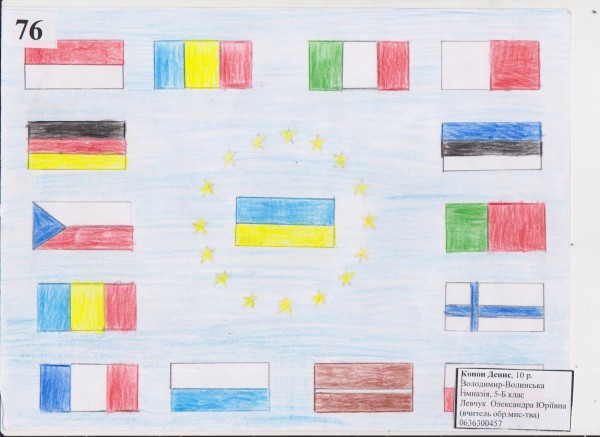 76
Конон Денис, 10 р.
Володимир-Волинська
гімназія, 5-Б клас
Левчук Олександра Юріївна
(вчитель обр.мис-тва)
0636300457